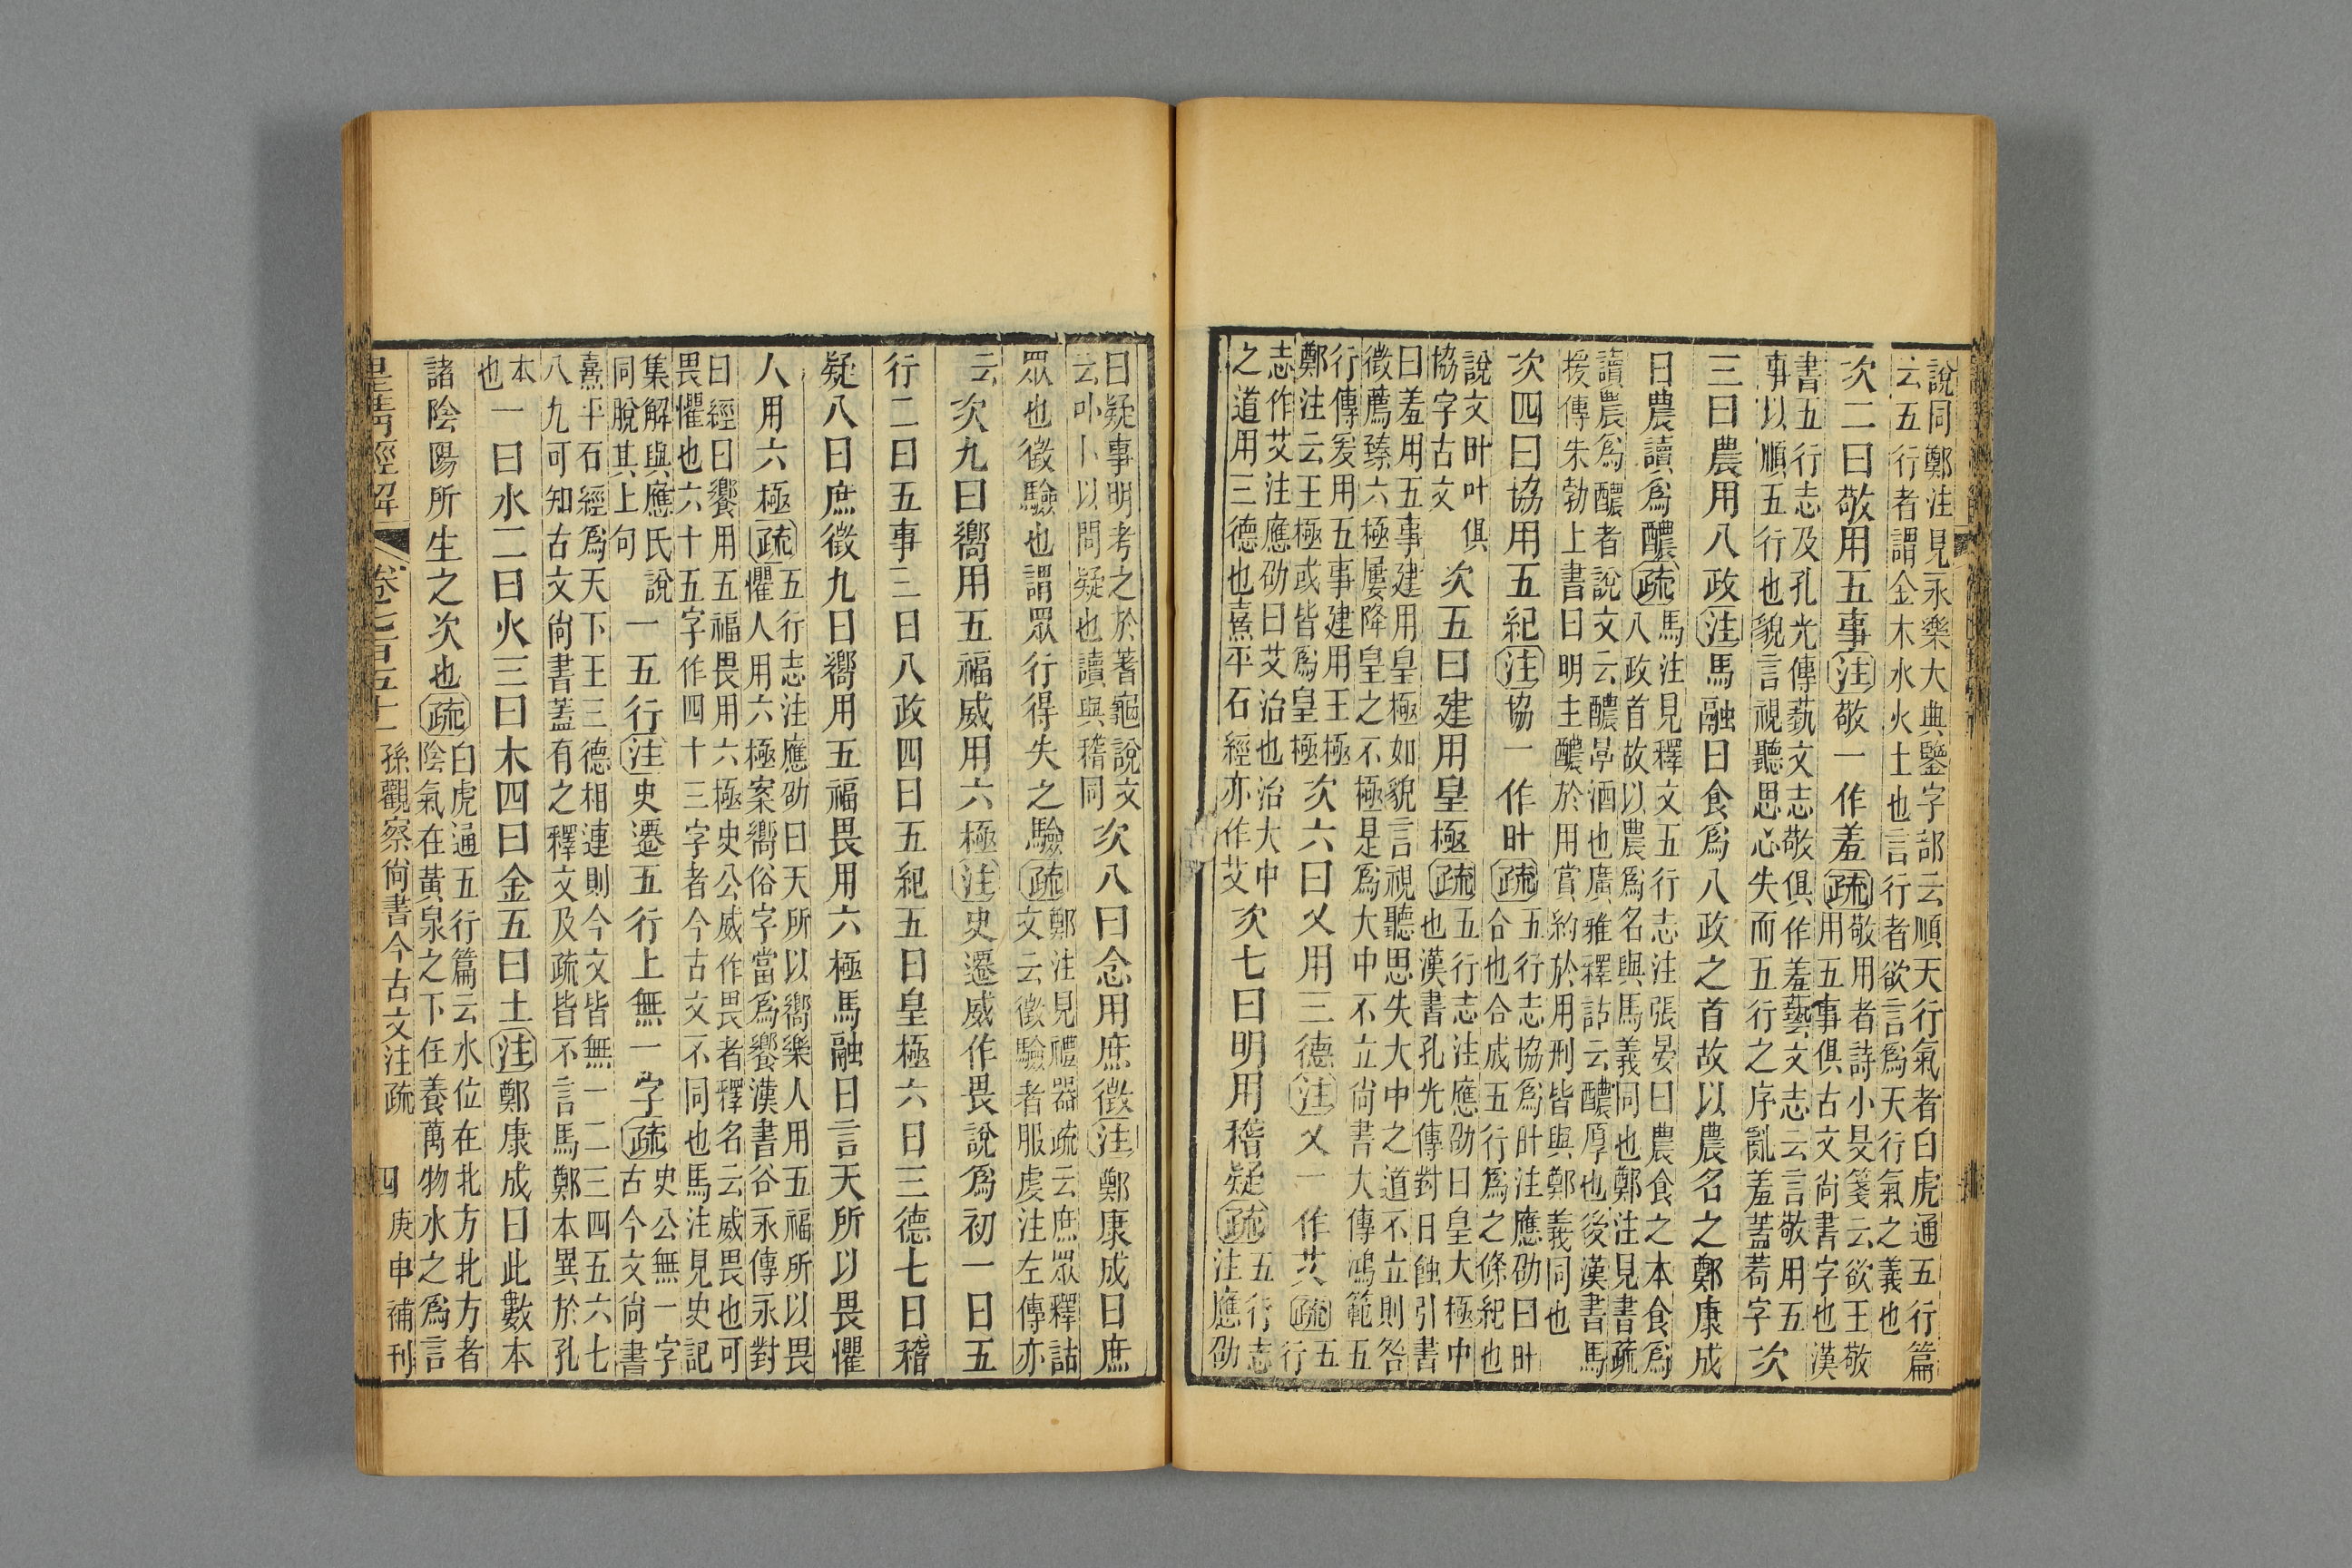 說同鄭注見永樂大典鑒字部云順天行氣者白虎通五行篇
云五行者謂金木水火土也言行者欲言爲天行氣之義也
次二曰敬用五事注敬一作羞疏敬用者詩小旻箋云欲王敬
用五事俱古文尚書字也漢
書五行志及孔光傳蓺文志敬俱作羞藝文志云言敬用五
事以順五行也貌言視聽思心失而五行之序亂羞蓋苟字次
三曰農用八政注馬融曰食爲八政之首故以農名之鄭康成
曰農讀爲醲疏馬注見釋文五行志注張晏曰農食之本食爲
八政首故以農爲名與馬義同也鄭注見書疏
讀農爲醲者說文云醲厚酒也廣雅釋詁云醲厚也後漢書馬
援傳朱勃上書曰明主醲於用賞約於用刑皆與鄭義同也
次四曰協用五紀注協一作叶疏五行志協爲叶注應劭曰叶
合也合成五行爲之條紀也
說文叶叶俱
協字古文
次五曰建用皇極疏五行志注應劭曰皇大極中
也漢書孔光傳對日蝕引書
曰羞用五事建用皇極如貌言視聽思失大中之道不立則咎
徵薦臻六極屢降皇之不極是爲大中不立尚書大傳鴻範五
行傳爰用五事建用王極
鄭注云王極或皆爲皇極
次六曰乂用三德注乂一作艾疏五
行
志作艾注應劭曰艾治也治大中
之道用三德也熹平石經亦作艾
次七曰明用稽疑疏五行志
注應劭
曰疑事明考之於蓍龜說文
云卟卜以問疑也讀與稽同
次八曰念用庶徵注鄭康成曰庶
眾也徵驗也謂眾行得失之驗疏鄭注見禮器疏云庶眾釋詁
文云徵驗者服虔注左傳亦
云次九曰嚮用五福威用六極注史遷威作畏說爲初一曰五
行二曰五事三曰八政四曰五紀五曰皇極六曰三德七曰稽
疑八曰庶徵九曰嚮用五福畏用六極馬融曰言天所以畏懼
人用六極疏五行志注應劭曰天所以嚮樂人用五福所以畏
懼人用六極案嚮俗字當爲饗漢書谷永傳永對
曰經曰饗用五福畏用六極史公威作畏者釋名云威畏也可
畏懼也六十五字作四十三字者今古文不同也馬注見史記
集解與應氏說
同脫其上句
一五行注史遷五行上無一字疏史公無一字
古今文尚書
熹平石經爲天下王三德相連則今文皆無一二三四五六七
八九可知古文尚書蓋有之釋文及疏皆不言馬鄭本異於孔
本
也
一曰水二曰火三曰木四曰金五曰土注鄭康成曰此數本
諸陰陽所生之次也疏白虎通五行篇云水位在北方北方者
陰氣在黃泉之下任養萬物水之爲言
皇清經解 卷七百五十一 孫觀察尚書今古文注疏 四 庚申補刊